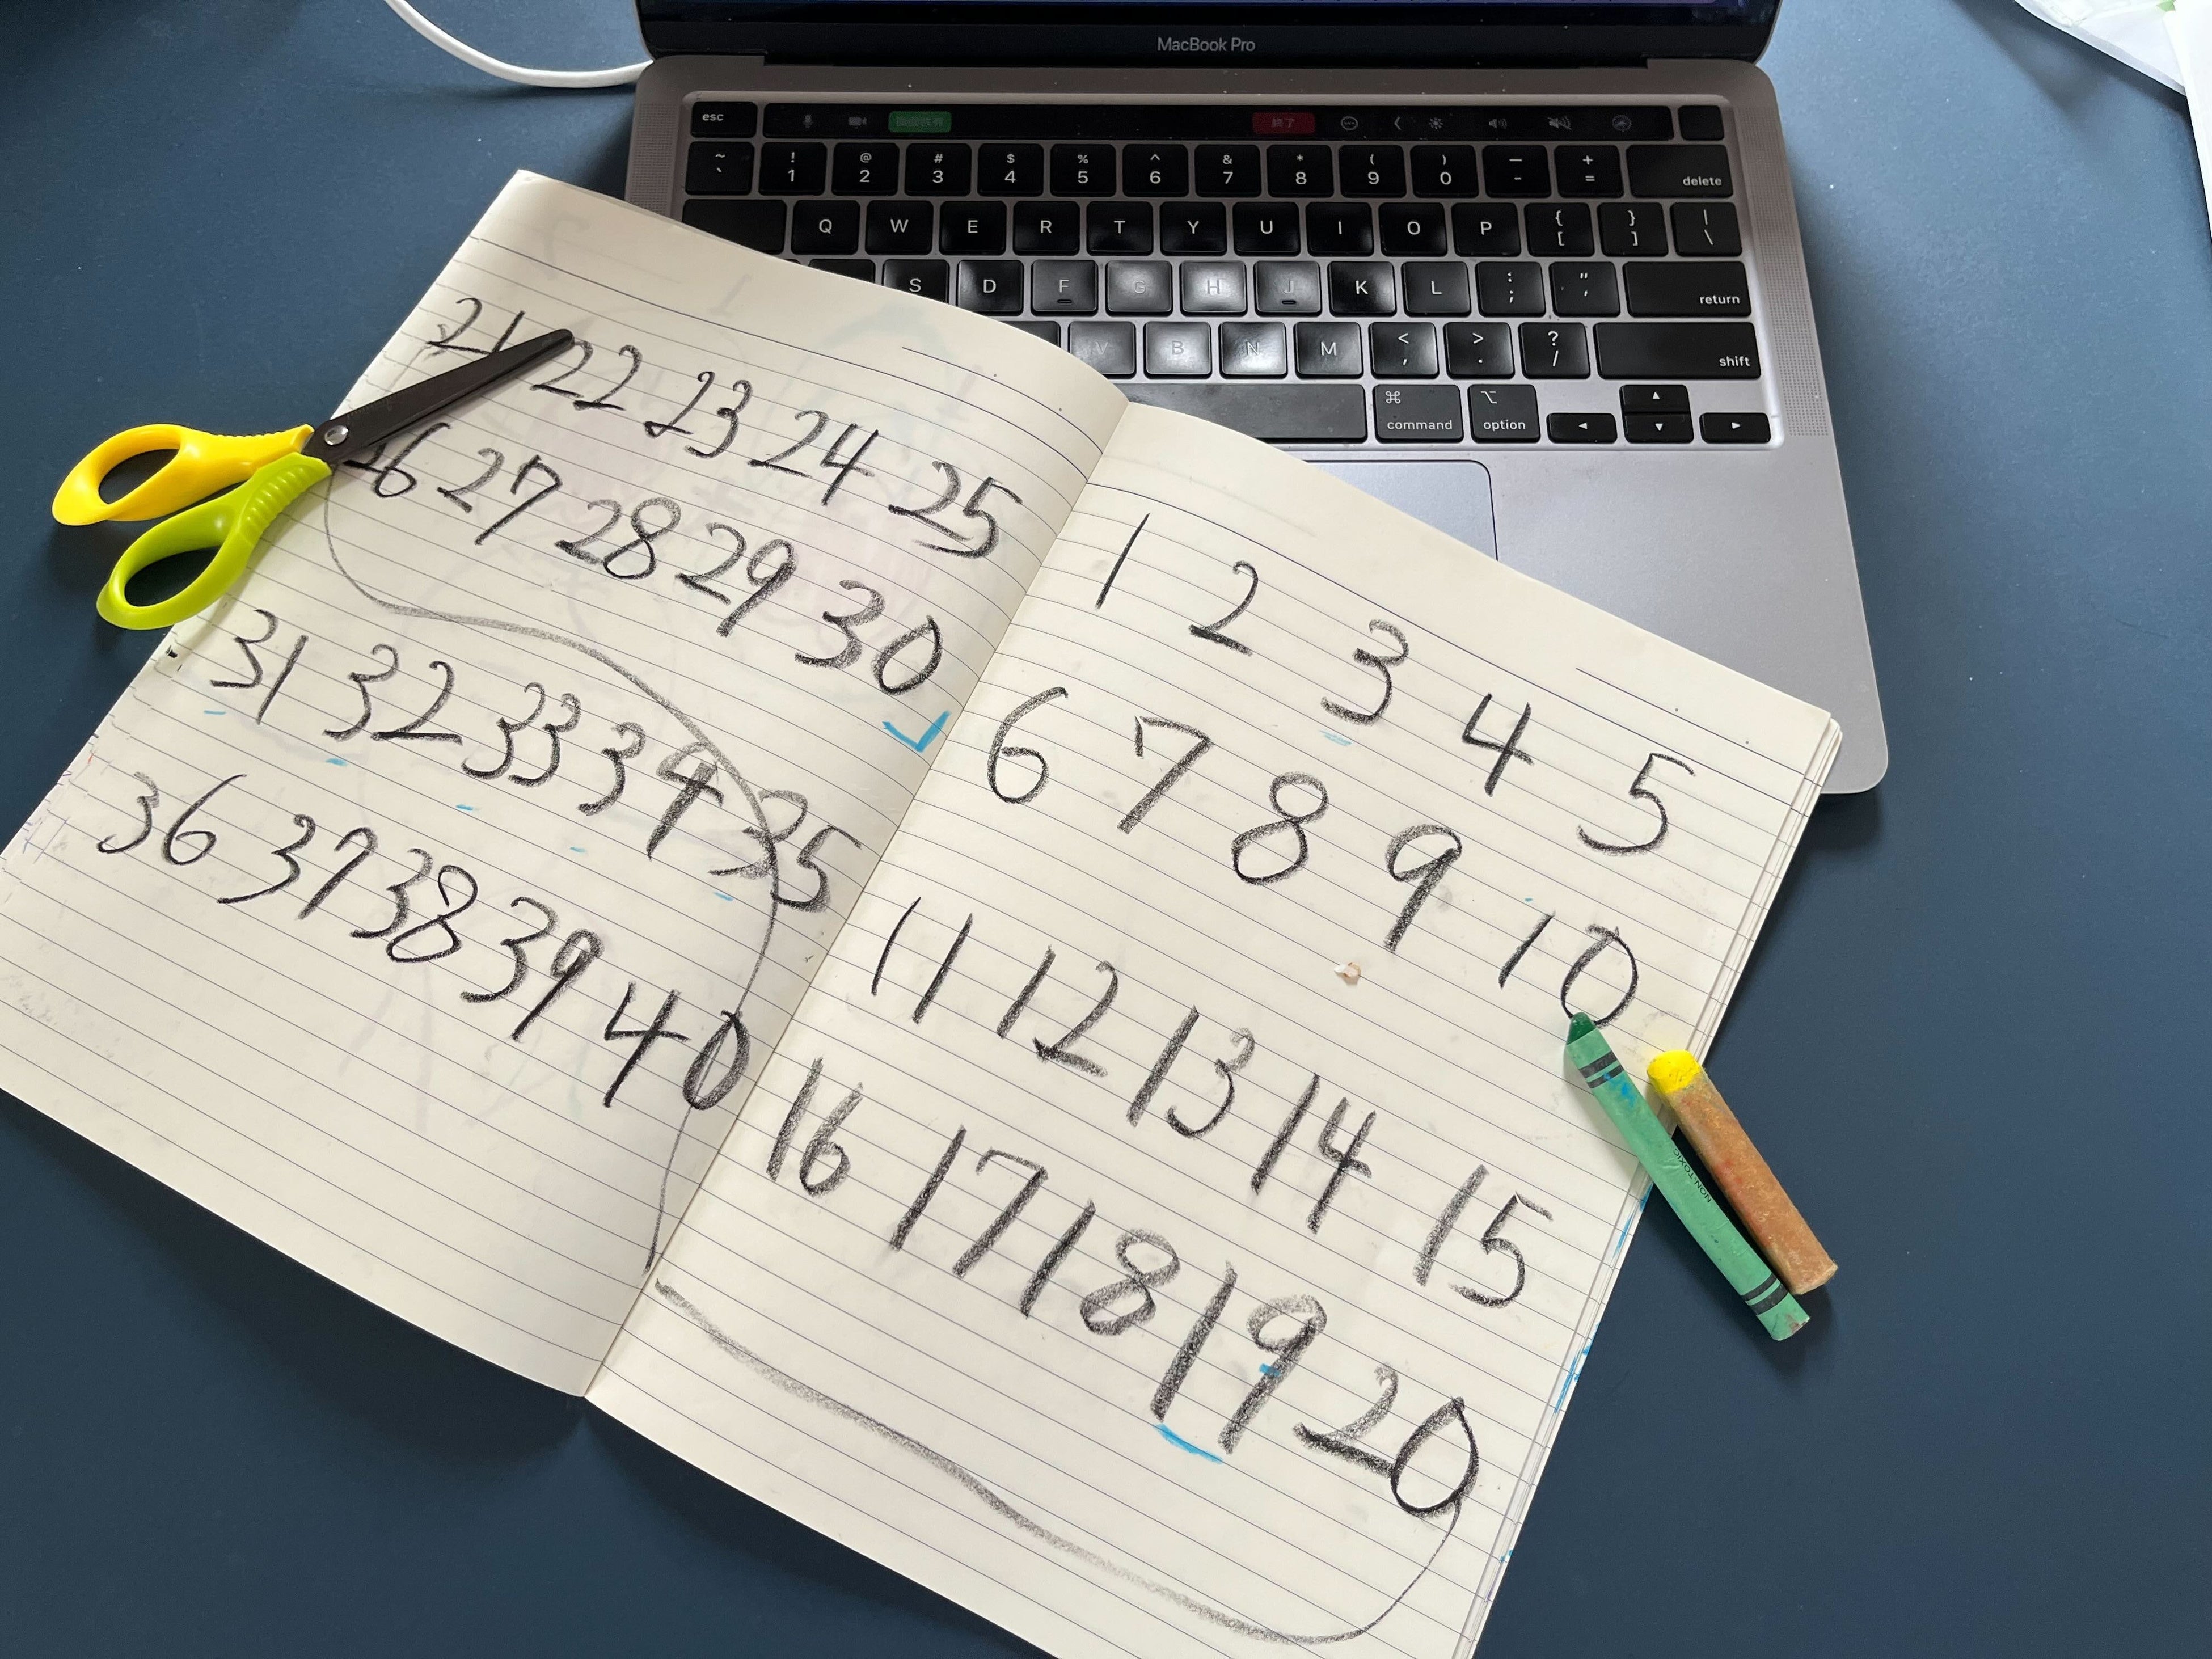 MacBook Pro
esc 終了
~ ` ! 1 @ 2 # 3 $ 4 % 5 ^ 6 & 7 * 8 ( 9 ) 0 — - + = delete
Q W E R T Y U I O P { [ } ] | \
S D F G H J K L : ; " ' return
V B N M < , > . ? / shift
⌘ command ⌥ option
21 22 23 24 25
26 27 28 29 30
31 32 33 34 35
36 37 38 39 40
1 2 3 4 5
6 7 8 9 10
11 12 13 14 15
16 17 18 19 20
NON-TOXIC